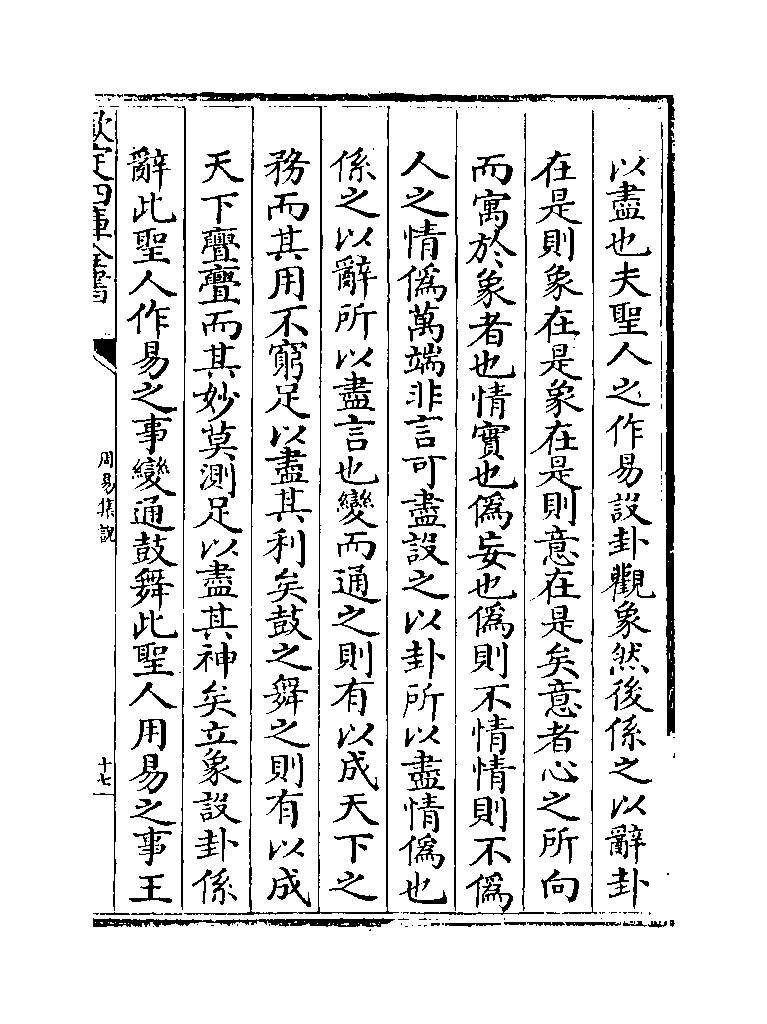 以盡也夫聖人之作易設卦觀象然後係之以辭卦
在是則象在是象在是則意在是矣意者心之所向
而寓於象者也情實也偽妄也偽則不情情則不偽
人之情偽萬端非言可盡設之以卦所以盡情偽也
係之以辭所以盡言也變而通之則有以成天下之
務而其用不窮足以盡其利矣鼓之舞之則有以成
天下亹亹而其妙莫測足以盡其神矣立象設卦係
辭此聖人作易之事變通鼓舞此聖人用易之事王
欽定四庫全書
周易集說
十七